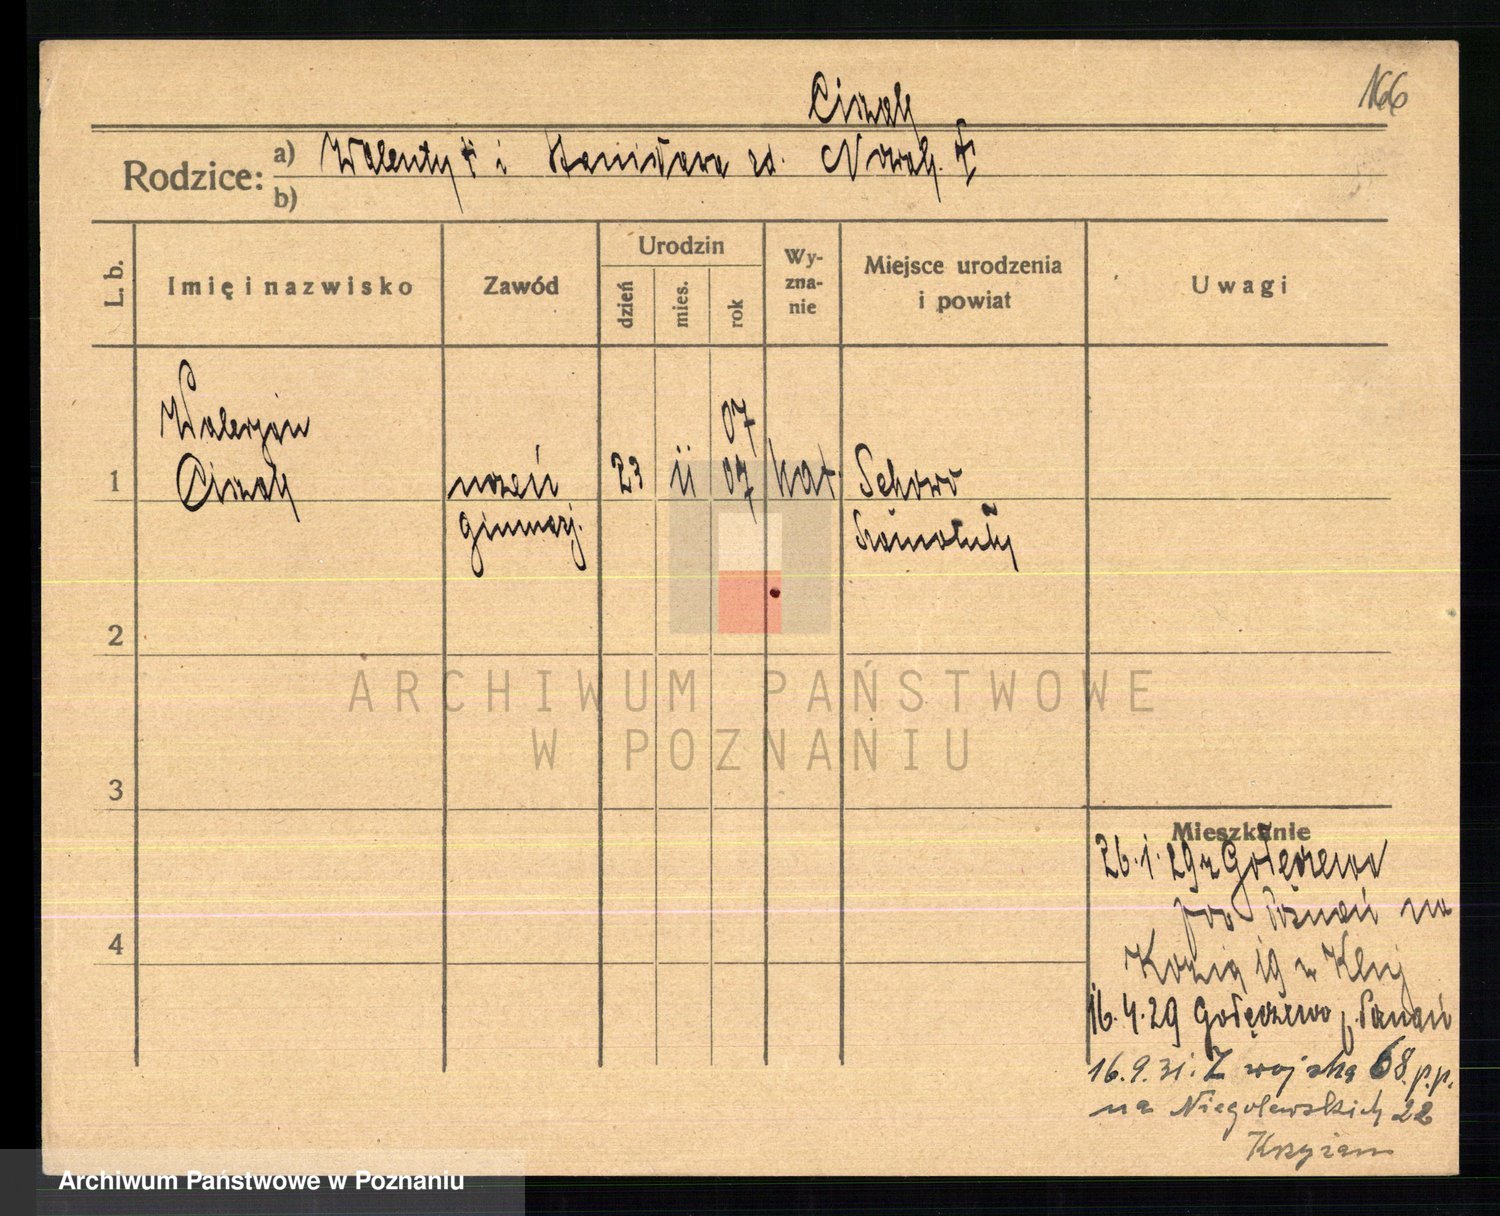 166
Ciszak
Rodzice: a) Walenty † i Stanisława zd. Nowak. †
b)
L. b.
Imię i nazwisko
Zawód
Urodzin
dzień
mies.
rok
Wy-
zna-
nie
Miejsce urodzenia
i powiat
Uwagi
Waleryan
07
1 Ciszak uczeń 23 11 07 kat.
gimnazj.
Szamotuły
2
3
4
ARCHIWUM PAŃSTWOWE
W POZNANIU
Mieszkanie
26.1.29 z Gołęczewa
pow Poznań na
Kozią 19 u Kluj
16.4.29 Gołęczewo p. Poznań
16.9.31: Z wojska 68.p.p.
na Niegolewskich 22
Archiwum Państwowe w Poznaniu